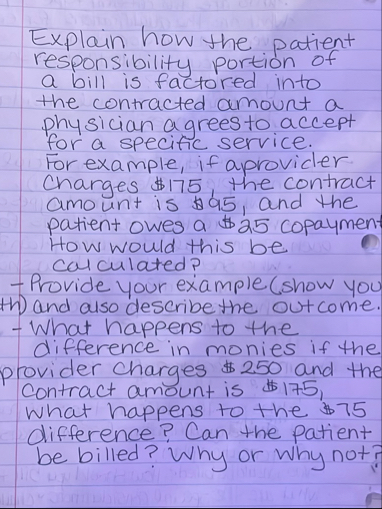 Explain how the patient
responsibility portion of
a bill is factored into
the contracted amount a
physician agrees to accept
for a specific service.
For example, if aprovider
Charges $175, the contract
amount is $95, and the
patient owes a $25 copayment
How would this be
calculated?
- Provide your example (show you
th) and also describe the outcome.
- What happens to the
difference in monies if the
provider charges $250 and the
contract amount is $175,
what happens to the $75
difference? Can the patient
be billed? Why or why not?